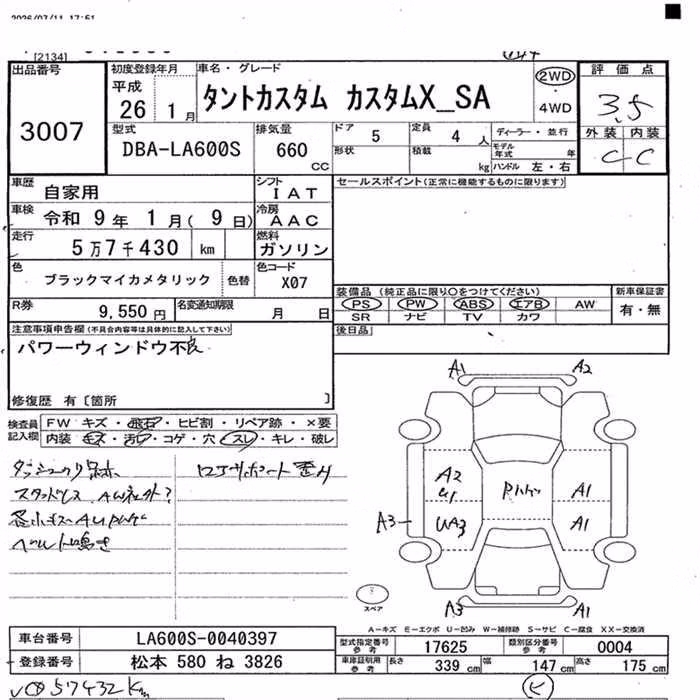 2026/07/11 17:51
[2134]
出品番号
3007
初度登録年月
平成
26 1月
車名・グレード
タントカスタム カスタムX_SA
2WD
4WD
評価点
3.5
外装 内装
C C
型式
DBA-LA600S
排気量
660 CC
ドア 5
定員 4 人
形状
積載 kg
ディーラー・並行
モデル年式 年
ハンドル 左・右
車歴
自家用
シフト
IAT
車検
令和 9年 1月( 9日)
冷房
AAC
走行
5万7千430 km
燃料
ガソリン
色
ブラックマイカメタリック
色替
色コード
X07
R券
9,550円
名変通知期限
月 日
セールスポイント(正常に機能するものに限ります)
装備品 (純正品に限り〇をつけてください)
新車保証書
PS PW ABS エアB AW
有・無
SR ナビ TV カワ
後日品
注意事項申告欄(不具合内容等は具体的に記入して下さい)
パワーウィンドウ不良
修復歴 有〔箇所 〕
検査員記入欄
FW キズ・飛石・ヒビ割・リペア跡・×要
内装 キズ・汚レ・コゲ・穴・スレ・キレ・破レ
ベルト鳴き
A1
A2
A2
U1
A1
A3
UA3
A1
A3
A1
スペア
A-キズ E-エクボ U-凹み W-補修跡 S-サビ C-腐食 XX-交換済
車台番号
LA600S-0040397
登録番号
松本 580 ね 3826
型式指定番号
参考
17625
類別区分番号
参考
0004
車庫証明用
参考
長さ 339 cm
幅 147 cm
高さ 175 cm
57432Km